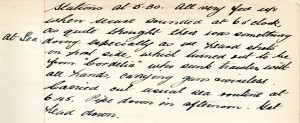 Stations at 5.30. All very fed up
when secure sounded at 6 o'clock,
At Sea. as quite thought there was something
doing especially as we heard shots
on port side, which turned out to be
from "Cordelia" who sunk trawler with
all hands, carrying gun & wireless.
Carried out usual sea routine at
6.45. Pipe down in afternoon. Get
head down.